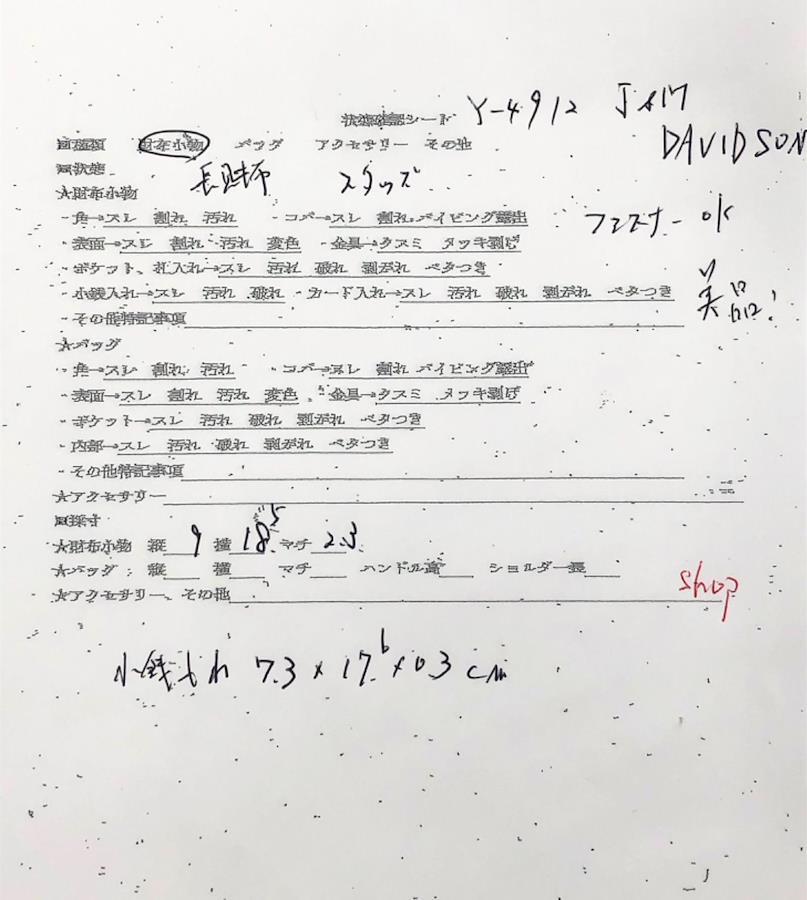 状態確認シート Y-4912 JAM
DAVIDSON
回種類 財布小物 バッグ アクセサリー その他
回状態 長財布 スタッズ
★財布小物
・角→スレ 割れ 汚れ ・コバ→スレ 割れ パイピング露出 ファスナーOK
・表面→スレ 割れ 汚れ 変色 ・金具→クスミ メッキ剥げ
・ポケット、札入れ→スレ 汚れ 破れ 剥がれ ベタつき
・小銭入れ→スレ 汚れ 破れ ・カード入れ→スレ 汚れ 破れ 剥がれ ベタつき 美品!
・その他特記事項
★バッグ
・角→スレ 割れ 汚れ ・コバ→スレ 割れ パイピング露出
・表面→スレ 割れ 汚れ 変色 ・金具→クスミ メッキ剥げ
・ポケット→スレ 汚れ 破れ 剥がれ ベタつき
・内部→スレ 汚れ 破れ 剥がれ ベタつき
・その他特記事項
★アクセサリー
回採寸
★財布小物 縦 9 横 18.5 マチ 2.3
★バッグ 縦 横 マチ ハンドル高 ショルダー長
★アクセサリー、その他 shop
小銭入れ 7.3×17.6×0.3cm